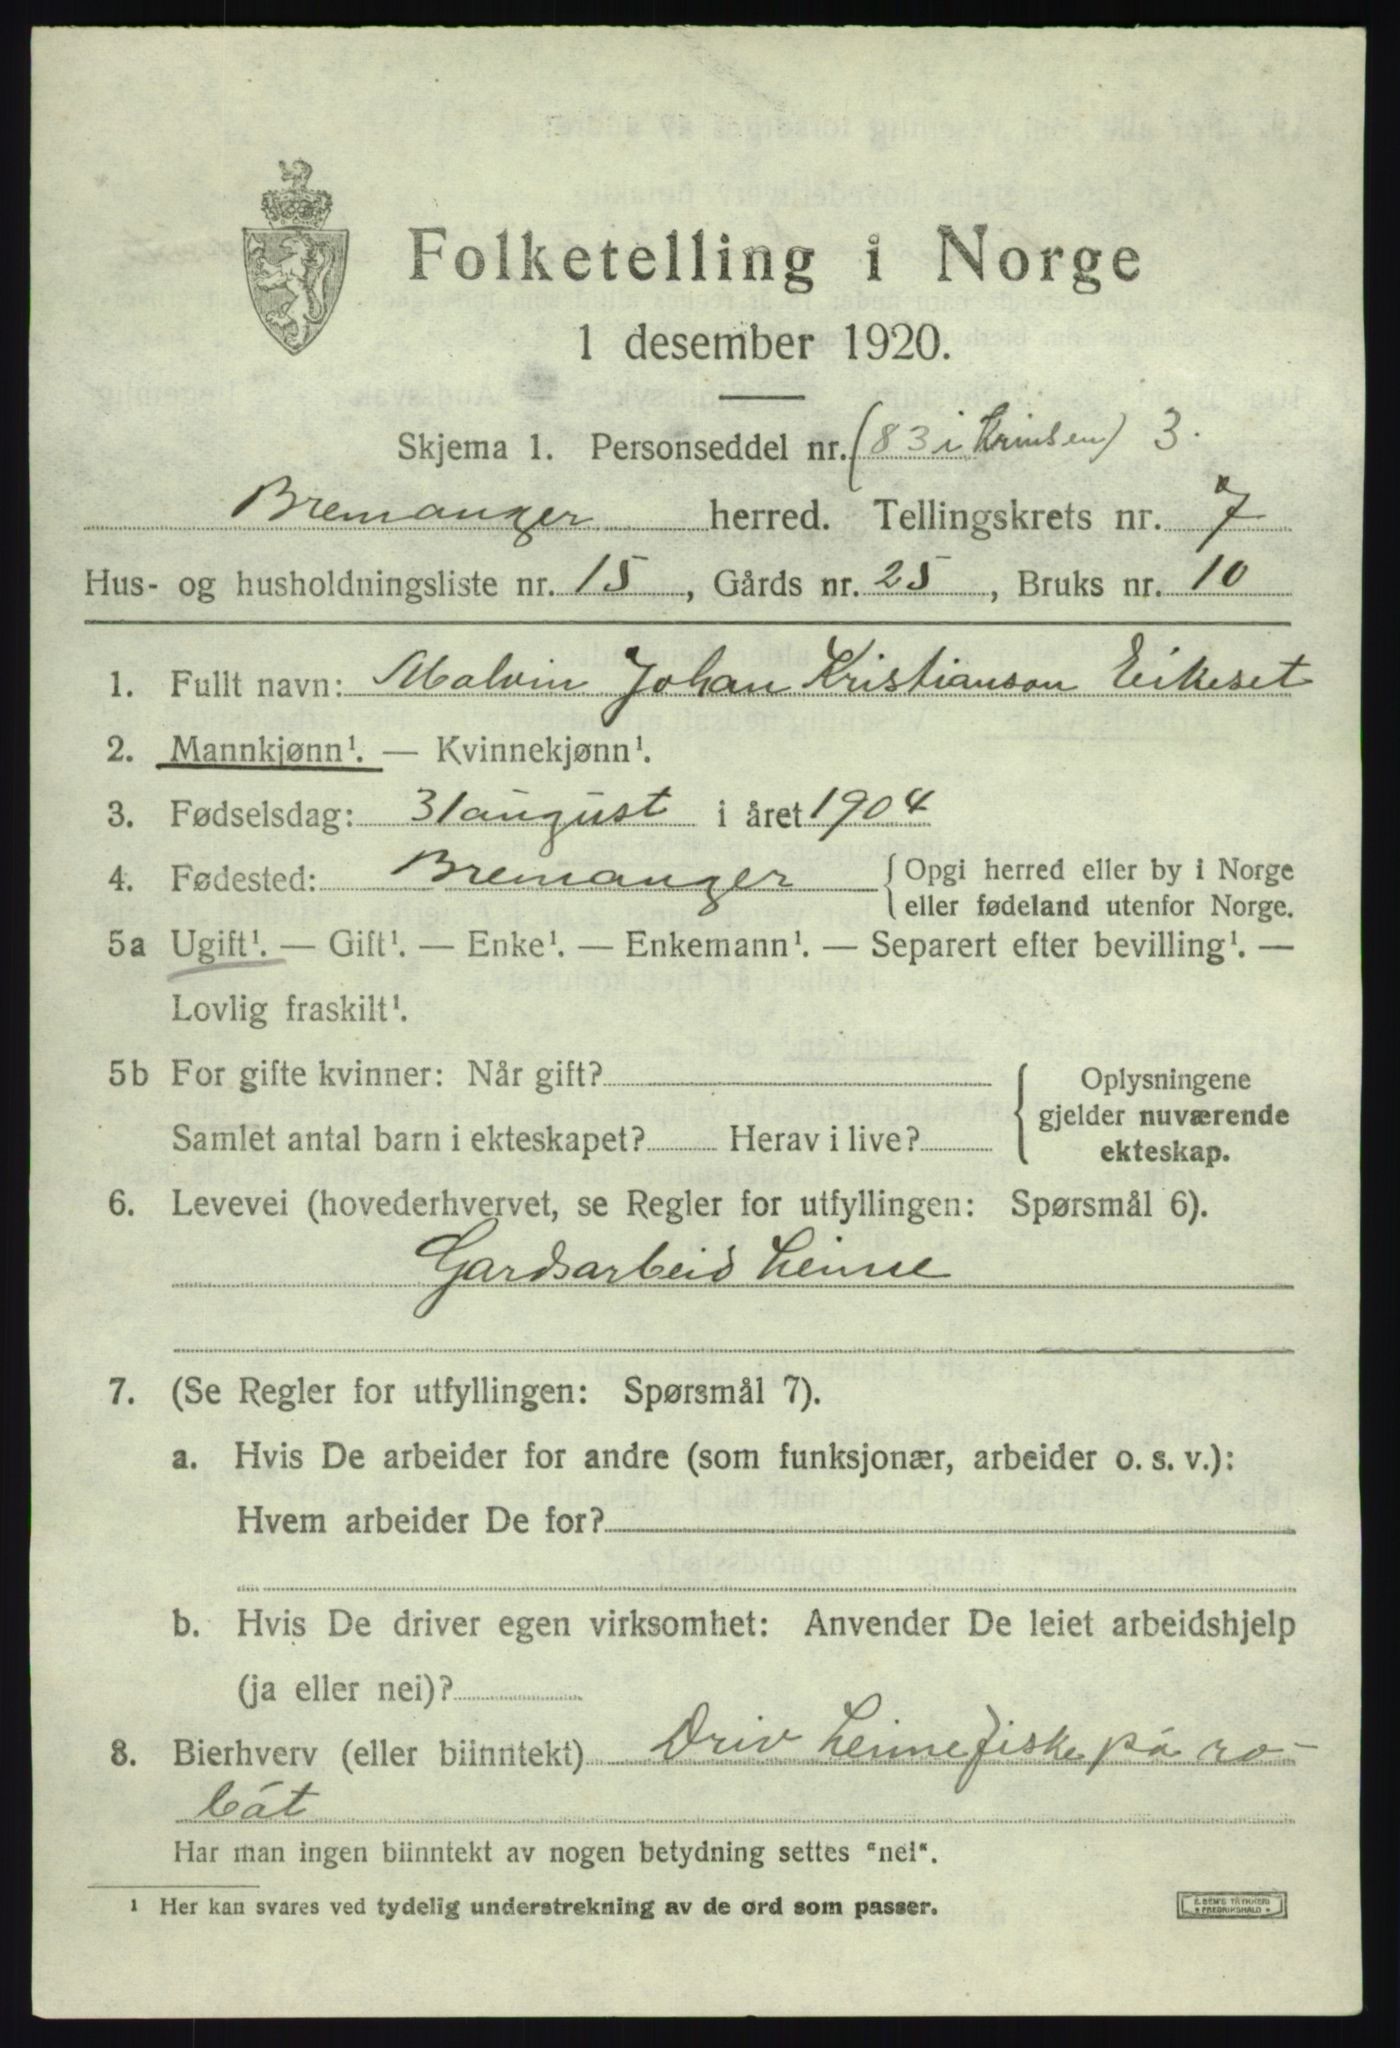 Folketelling i Norge
1 desember 1920.
Skjema 1. Personseddel nr. (83 i Krinsen) 3.
Bremanger herred. Tellingskrets nr. 7
Hus- og husholdningsliste nr. 15, Gårds nr. 25, Bruks nr. 10
1. Fullt navn: Malvin Johan Kristianson Eikeset
2. Mannkjønn¹. — Kvinnekjønn¹.
3. Fødselsdag: 31 august i året 1904
4. Fødested: Bremanger { Opgi herred eller by i Norge
eller fødeland utenfor Norge.
5a Ugift¹. — Gift¹. — Enke¹. — Enkemann¹. — Separert efter bevilling¹. —
Lovlig fraskilt¹.
5b For gifte kvinner: Når gift?
Samlet antal barn i ekteskapet? Herav i live?
{ Oplysningene
gjelder nuværende
ekteskap.
6. Levevei (hovederhvervet, se Regler for utfyllingen: Spørsmål 6).
Gardsarbeid heime
7. (Se Regler for utfyllingen: Spørsmål 7).
a. Hvis De arbeider for andre (som funksjonær, arbeider o. s. v.):
Hvem arbeider De for?
b. Hvis De driver egen virksomhet: Anvender De leiet arbeidshjelp
(ja eller nei)?
8. Bierhverv (eller biinntekt) Driv heimefiske på ro-
båt
Har man ingen biinntekt av nogen betydning settes "nei".
¹ Her kan svares ved tydelig understrekning av de ord som passer.
E. SEM'S TRYKKERI
* FREDRIKSHALD *